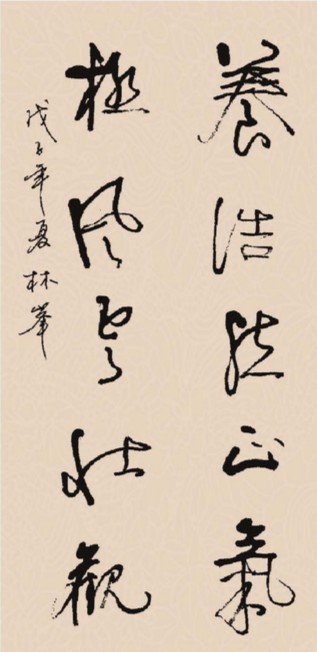 養浩然正氣
極風雲壯觀
戊子年夏林峰